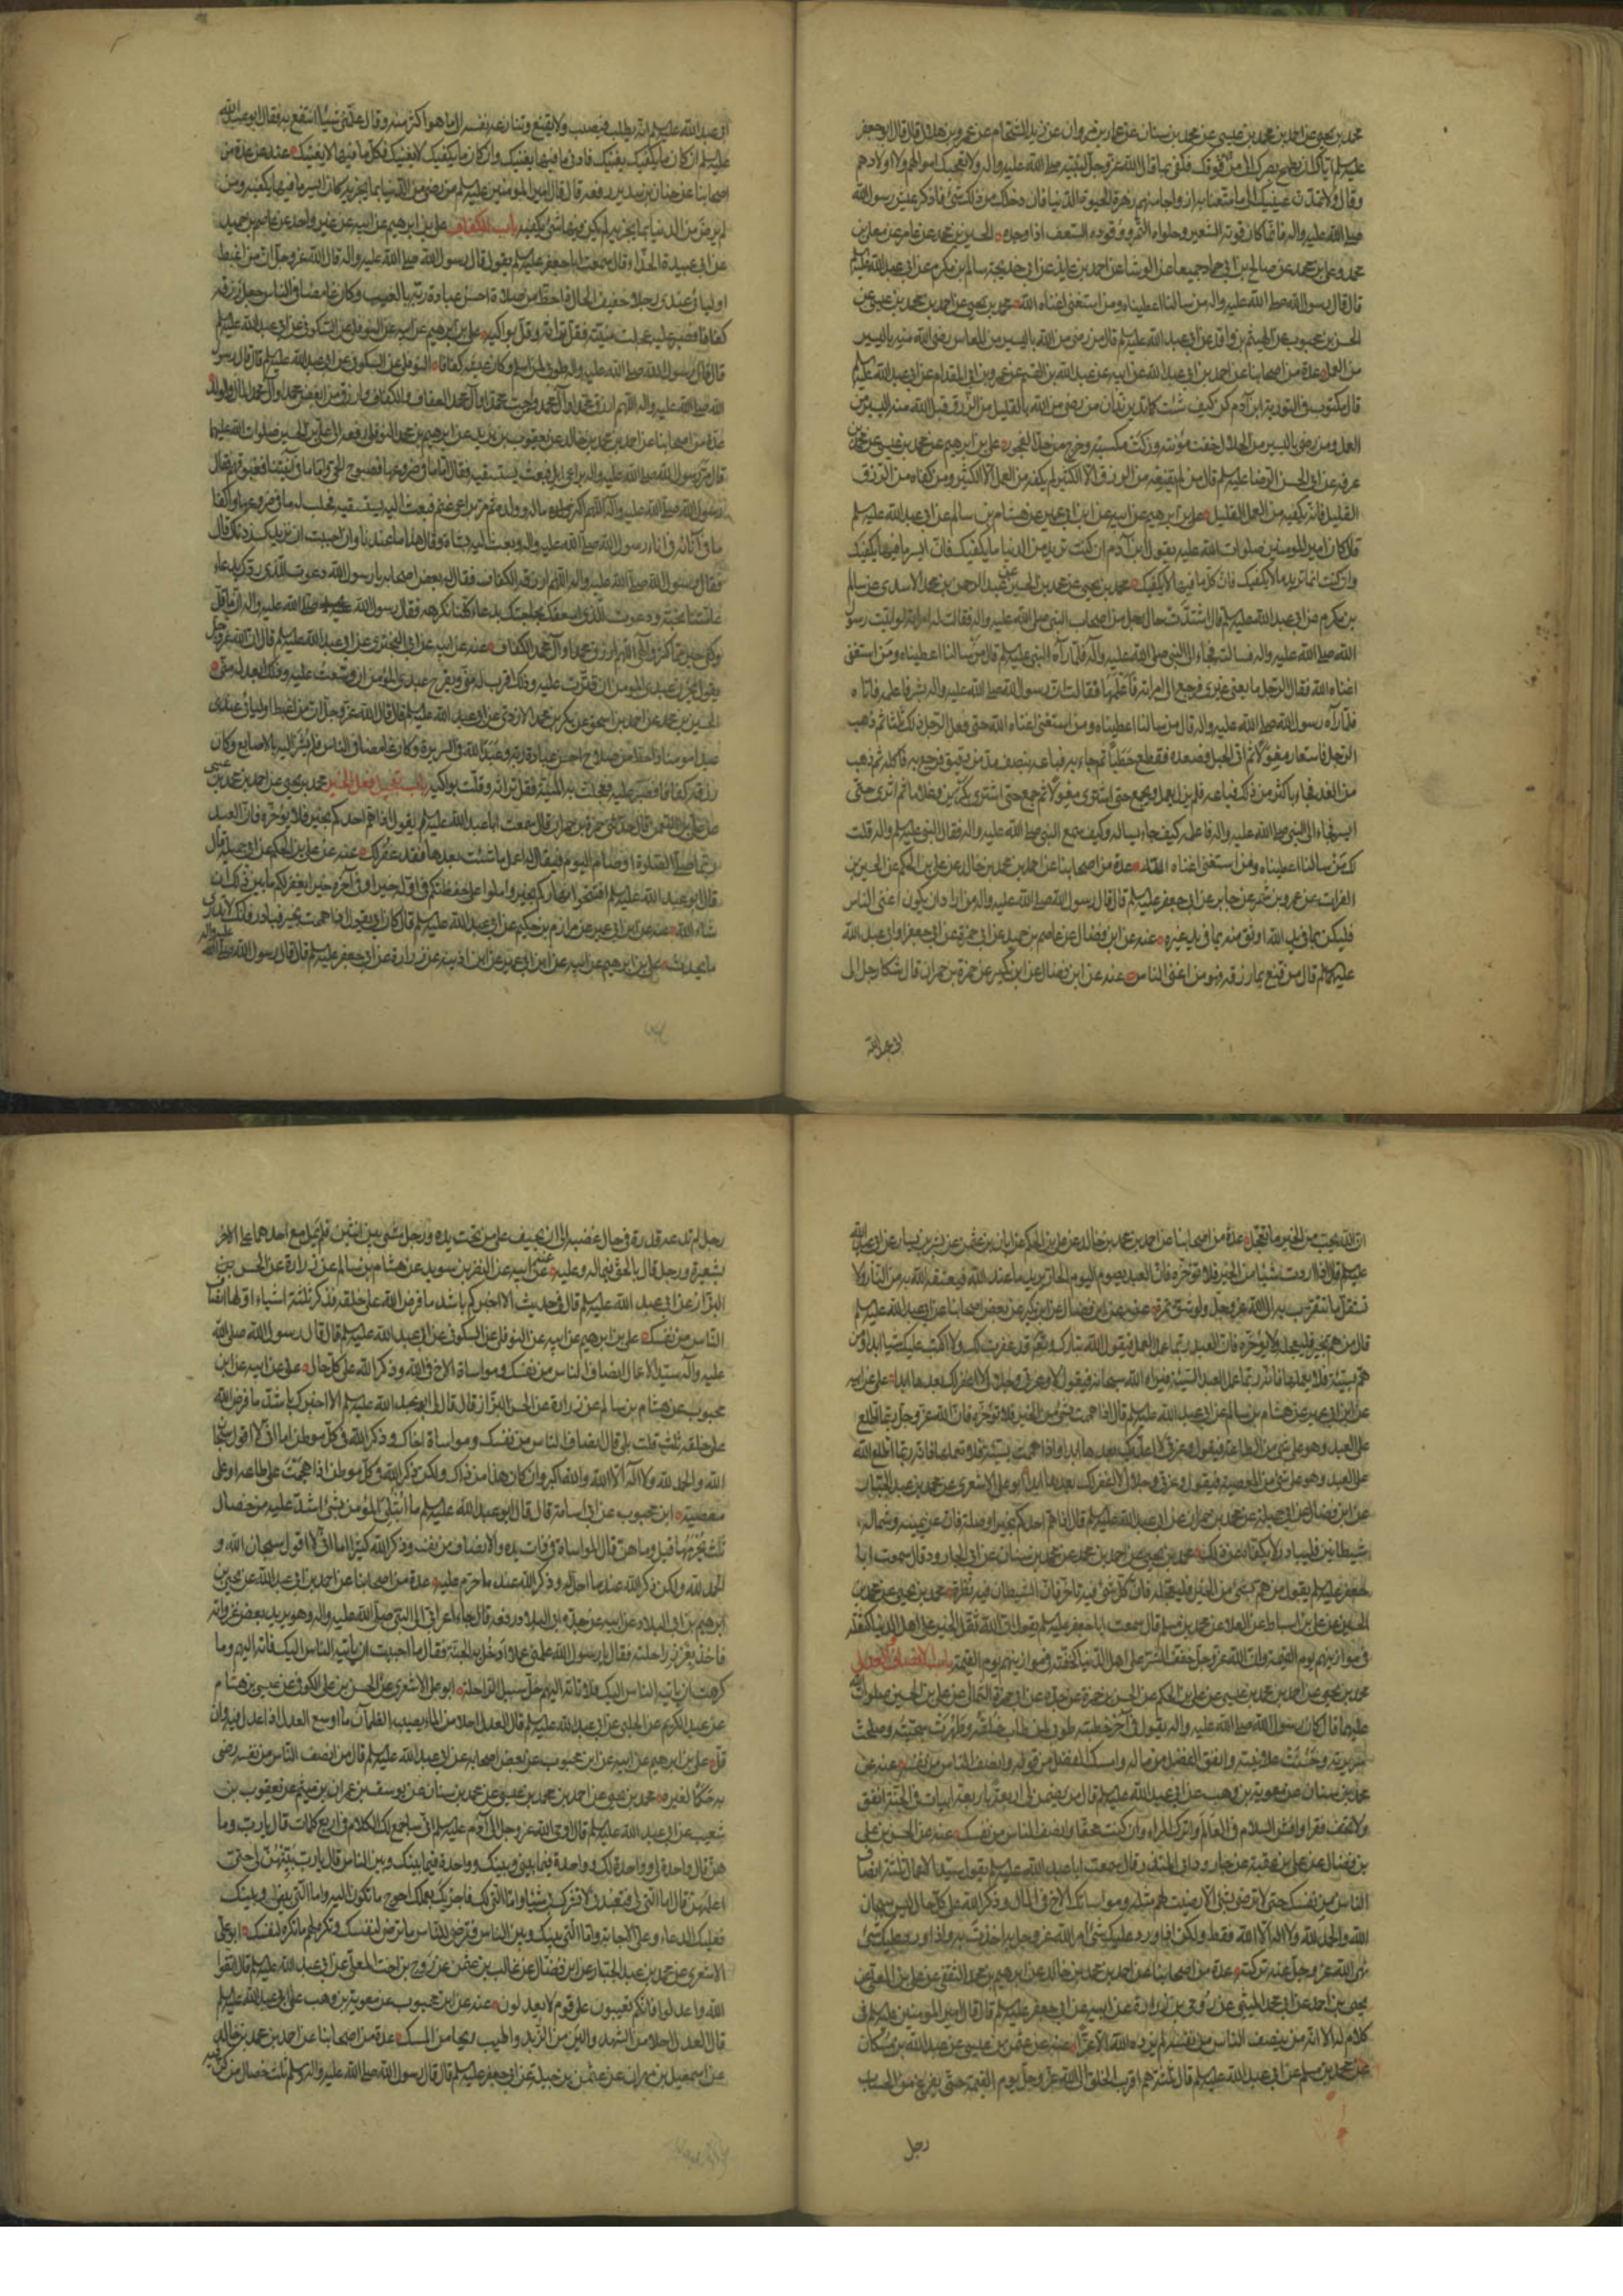 محمد بن يحيى عن احمد بن محمد بن عيسى عن محمد بن سنان عن عمار بن مروان عن زيد الشحام عن عمرو بن هلال قال قال ابو جعفر
عليه السلم اياك ان تطمح بصرك الى من فوقك فكفى بما قال الله عز وجل لنبيه صلى الله عليه واله ولا تعجبك اموالهم ولا اولادهم
وقال ولا تمدن عينيك الى ما متعنا به ازواجا منهم زهرة الحيوة الدنيا فان دخلك من ذلك شئ فاذكر عيش رسول الله
صلى الله عليه واله فانما كان قوته الشعير وحلواه التمر ووقوده السعف اذا وجده الحسين بن محمد عن معلى بن
محمد وعلى بن محمد عن صالح بن ابى حماد جميعا عن الوشا عن احمد بن عايذ عن ابى خديجة سالم بن مكرم عن ابى عبد الله عليه السلم
قال قال رسول الله صلى الله عليه واله من سالنا اعطيناه ومن استغنى اغناه الله محمد بن يحيى عن احمد بن محمد بن عيسى عن
الحسن بن محبوب عن الهيثم بن واقد عن ابى عبد الله عليه السلم قال من رضى من الله باليسير من المعاش رضى الله منه باليسير
من العمل عدة من اصحابنا عن احمد بن ابى عبد الله عن ابيه عن عبد الله بن القسم عن عمرو بن ابى المقدام عن ابى عبد الله عليه السلم
قال مكتوب فى التورية ابن آدم كن كيف شئت كما تدين تدان من رضى من الله بالقليل من الرزق قبل الله منه اليسير من
العمل ومن رضى باليسير من الحلال خفت مؤنته وزكت مكسبته وخرج من حد الفجور على بن ابرهيم عن محمد بن عيسى عن محمد بن
عرفه عن ابى الحسن الرضا عليه السلم قال من لم يقنعه من الرزق الا الكثير لم يكفه من العمل الا الكثير ومن كفاه من الرزق
القليل فانه يكفيه من العمل القليل على بن ابرهيم عن ابيه عن ابن ابى عمير عن هشام بن سالم عن ابى عبد الله عليه السلم
قال كان امير المومنين صلوات الله عليه يقول ابن آدم ان كنت تريد من الدنيا ما يكفيك فان ايسر ما فيها يكفيك
وان كنت انما تريد ما لا يكفيك فان كل ما فيها لا يكفيك محمد بن يحيى عن محمد بن الحسين عن عبد الرحمن بن محمد الاسدى عن سالم
بن مكرم عن ابى عبد الله عليه السلم قال اشتدت حال رجل من اصحاب النبى صلى الله عليه واله فقالت له امراته لو اتيت رسول
الله صلى الله عليه واله فسالته فجاء الى النبى صلى الله عليه وآله فلما رآه النبى عليه السلم قال من سالنا اعطيناه ومن استغنى
اغناه الله فقال الرجل ما يعنى غيرى فرجع الى امراته فاعلمها فقالت ان رسول الله صلى الله عليه واله بشر فاعلمه فاتاه
فلما رآه رسول الله صلى الله عليه واله قال من سالنا اعطيناه ومن استغنى اغناه الله حتى فعل الرجل ذلك ثلثا ثم ذهب
الرجل فاستعار معولا ثم اتى الجبل فصعده فقطع حطبا ثم جاء به فباعه بنصف مد من دقيق فرجع به فاكله ثم ذهب
من الغد فجاء باكثر من ذلك فباعه فلم يزل يعمل ويجمع حتى اشترى معولا ثم جمع حتى اشترى بكرين وغلاما ثم اثرى حتى
ايسر فجاء الى النبى صلى الله عليه واله فاعلمه كيف جاء يساله وكيف سمع النبى صلى الله عليه واله فقال النبى عليه السلم واله قلت
لك من سالنا اعطيناه ومن استغنى اغناه الله عدة من اصحابنا عن احمد بن محمد بن خالد عن على بن الحكم عن الحسين بن
الفرات عن عمرو بن شمر عن جابر عن ابى جعفر عليه السلم قال قال رسول الله صلى الله عليه واله من اراد ان يكون اغنى الناس
فليكن بما فى يد الله اوثق منه بما فى يد غيره عنه عن ابن فضال عن عاصم بن حميد عن ابى حمزة عن ابى جعفر او ابى عبد الله
عليهما السلم قال من قنع بما رزقه فهو من اغنى الناس عنه عن ابن فضال عن ابن بكير عن حمزة بن حمران قال شكا رجل الى
ابى عبد الله
ابى عبد الله عليه السلم انه يطلب فيصيب ولا يقنع وتنازعه نفسه الى ما هو اكثر منه وقال علمنى شيئا انتفع به فقال ابو عبد الله
عليه السلم ان كان ما يكفيك يغنيك فادنى ما فيها يغنيك وان كان ما يكفيك لا يغنيك فكل ما فيها لا يغنيك عنه عن عدة من
اصحابنا عن حنان بن سدير رفعه قال قال امير المؤمنين عليه السلم من رضى من الدنيا بما يجزيه كان ايسر ما فيها يكفيه ومن
لم يرض من الدنيا بما يجزيه لم يكن فيها شئ يكفيه باب الكفاف على بن ابرهيم عن ابيه عن غير واحد عن عاصم بن حميد
عن ابى عبيدة الحذاء قال سمعت ابا جعفر عليه السلم يقول قال رسول الله صلى الله عليه واله قال الله عز وجل ان من اغبط
اوليائى عندى رجلا خفيف الحال ذا حظ من صلاة احسن عبادة ربه بالغيب وكان غامضا فى الناس جعل رزقه
كفافا فصبر عليه عجلت منيته فقل تراثه وقل بواكيه على بن ابرهيم عن ابيه عن النوفلى عن السكونى عن ابى عبد الله عليه السلم
قال قال رسول الله صلى الله عليه واله طوبى لمن اسلم وكان عيشه كفافا النوفلى عن السكونى عن ابى عبد الله عليه السلم قال قال رسول
الله صلى الله عليه واله اللهم ارزق محمدا وآل محمد ومن احب محمدا وآل محمد العفاف والكفاف وارزق من ابغض محمدا وآل محمد المال والولد
عدة من اصحابنا عن احمد بن محمد بن خالد عن يعقوب بن يزيد عن ابرهيم بن محمد النوفلى رفعه الى على بن الحسين صلوات الله عليهما
قال مر رسول الله صلى الله عليه واله براعى ابل فبعث يستسقيه فقال اما ما فى ضروعها فصبوح الحى واما ما فى آنيتنا فغبوقهم فقال
رسول الله صلى الله عليه وآله اللهم اكثر ماله وولده ثم مر براعى غنم فبعث اليه يستسقيه فحلب له ما فى ضروعها واكفا
ما فى انائه فى اناء رسول الله صلى الله عليه واله وبعث اليه بشاة وقال هذا ما عندنا وان احببت ان نزيدك زدناك قال
فقال رسول الله صلى الله عليه واله اللهم ارزقه الكفاف فقال له بعض اصحابه يا رسول الله دعوت للذى ردك بدعاء
عامتنا نحبه ودعوت للذى اسعفك بحاجتك بدعاء كلنا نكرهه فقال رسول الله صلى الله عليه واله ان ما قل
وكفى خير مما كثر والهى اللهم ارزق محمدا وآل محمد الكفاف عنه عن ابيه عن ابى البخترى عن ابى عبد الله عليه السلم قال ان الله عز وجل
يقول يحزن عبدى المومن ان قترت عليه وذلك اقرب له منى ويفرح عبدى المؤمن ان وسعت عليه وذلك ابعد له منى
الحسين بن محمد عن احمد بن اسحق عن بكر بن محمد الازدى عن ابى عبد الله عليه السلم قال قال الله عز وجل ان من اغبط اوليائى عندى
عبدا مومنا ذا حظ من صلاح احسن عبادة ربه وعبد الله فى السريرة وكان غامضا فى الناس فلم يشر اليه بالاصابع وكان
رزقه كفافا فصبر عليه فعجلت به المنية فقل تراثه وقلت بواكيه باب تعجيل فعل الخير محمد بن يحيى عن احمد بن محمد بن عيسى
عن على بن النعمن قال حدثنى حمزة بن حمران قال سمعت ابا عبد الله عليه السلم يقول اذا هم احدكم بخير فلا يؤخره فان العبد
ربما صلى الصلوة او صام اليوم فيقال له اعمل ما شئت بعدها فقد غفر لك عنه عن على بن الحكم عن ابى جميلة قال
قال ابو عبد الله عليه السلم افتتحوا نهاركم بخير واملوا على حفظتكم فى اوله خيرا وفى آخره خيرا يغفر لكم ما بين ذلك ان
شاء الله عنه عن ابن ابى عمير عن مرازم بن حكيم عن ابى عبد الله عليه السلم قال كان ابى يقول اذا هممت بخير فبادر فانك لا تدرى
ما يحدث على بن ابرهيم عن ابيه عن ابن ابى عمير عن ابن اذينه عن زرارة عن ابى جعفر عليه السلم قال قال رسول الله صلى الله عليه واله
ان الله يحب من الخير ما يعجل عدة من اصحابنا عن احمد بن محمد بن خالد عن على بن الحكم عن ابان بن عثمن عن بشر بن يسار عن ابى عبد الله
عليه السلم قال اذا اردت شيئا من الخير فلا تؤخره فان العبد يصوم اليوم الحار يريد ما عند الله فيعتقه الله به من النار ولا
تستقل ما تتقرب به الى الله عز وجل ولو شق تمرة عنه عن ابن فضال عن ابن بكير عن بعض اصحابنا عن ابى عبد الله عليه السلم
قال من هم بخير فليعجله ولا يؤخره فان العبد ربما عمل العمل فيقول الله تبارك وتعالى قد غفرت لك ولا اكتب عليك شيئا ابدا ومن
هم بسيئة فلا يعملها فانه ربما عمل العبد السيئة فيراه الله سبحانه فيقول لا وعزتى وجلالى لا اغفر لك بعدها ابدا على عن ابيه
عن ابن ابى عمير عن هشام بن سالم عن ابى عبد الله عليه السلم قال اذا هممت بشئ من الخير فلا تؤخره فان الله عز وجل ربما اطلع
على العبد وهو على شئ من الطاعة فيقول وعزتى وجلالى لا اعذبك بعدها ابدا واذا هممت بسيئة فلا تعملها فانه ربما اطلع الله
على العبد وهو على شئ من المعصية فيقول وعزتى وجلالى لا اغفر لك بعدها ابدا ابو على الاشعرى عن محمد بن عبد الجبار
عن ابن فضال عن ابى جميلة عن محمد بن حمران عن ابى عبد الله عليه السلم قال اذا هم احدكم بخير او صلة فان عن يمينه وشماله
شيطانين فليبادر لا يكفاه عن ذلك محمد بن يحيى عن احمد بن محمد عن محمد بن سنان عن ابى الجارود قال سمعت ابا
جعفر عليه السلم يقول من هم بشئ من الخير فليعجله فان كل شئ فيه تاخير فان للشيطان فيه نظرة محمد بن يحيى عن محمد بن
الحسين عن على بن اسباط عن العلاء عن محمد بن مسلم قال سمعت ابا جعفر عليه السلم يقول ان الله ثقل الخير على اهل الدنيا كثقله
فى موازينهم يوم القيمة وان الله عز وجل خفف الشر على اهل الدنيا كخفته فى موازينهم يوم القيمة باب الانصاف والعدل
محمد بن يحيى عن احمد بن محمد بن عيسى عن على بن الحكم عن الحسن بن حمزة عن جده عن ابى حمزة الثمالى عن على بن الحسين صلوات الله
عليهما قال كان رسول الله صلى الله عليه واله يقول فى آخر خطبته طوبى لمن طاب خلقه وطهرت سجيته وصلحت
سريرته وحسنت علانيته وانفق الفضل من ماله وامسك الفضل من قوله وانصف الناس من نفسه عنه عن
محمد بن سنان عن معوية بن وهب عن ابى عبد الله عليه السلم قال من يضمن لى اربعة باربعة ابيات فى الجنة انفق
ولا تخف فقرا وافش السلام فى العالم واترك المراء وان كنت محقا وانصف الناس من نفسك عنه عن الحسن بن على
بن فضال عن على بن عقبة عن جارود ابى المنذر قال سمعت ابا عبد الله عليه السلم يقول سيد الاعمال ثلثة انصاف
الناس من نفسك حتى لا ترضى بشئ الا رضيت لهم مثله ومواساتك الاخ فى المال وذكر الله على كل حال ليس سبحان
الله والحمد لله ولا اله الا الله فقط ولكن اذا ورد عليك شئ امر الله عز وجل به اخذت به واذا ورد عليك شئ
نهى الله عز وجل عنه تركته عدة من اصحابنا عن احمد بن محمد بن خالد عن ابرهيم بن محمد الثقفى عن على بن المعلى عن
يحيى بن احمد عن ابى محمد الميثمى عن رومى بن زرارة عن ابيه عن ابى جعفر عليه السلم قال قال امير المومنين عليه السلم فى
كلام له الا انه من ينصف الناس من نفسه لم يزده الله الا عزا عنه عن عثمن بن عيسى عن عبد الله بن مسكان
عن محمد بن مسلم عن ابى عبد الله عليه السلم قال ثلثة هم اقرب الخلق الى الله عز وجل يوم القيمة حتى يفرغ من الحساب
رجل
رجل لم تدعه قدرة فى حال غضبه الى ان يحيف على من تحت يده ورجل مشى بين اثنين فلم يمل مع احدهما على الاخر
بشعيرة ورجل قال بالحق فيما له وعليه عنه عن ابيه عن النضر بن سويد عن هشام بن سالم عن زرارة عن الحسن
البزاز عن ابى عبد الله عليه السلم قال فى حديث الا اخبركم باشد ما فرض الله على خلقه فذكر ثلثة اشياء اولها انصاف
الناس من نفسك على بن ابرهيم عن ابيه عن النوفلى عن السكونى عن ابى عبد الله عليه السلم قال قال رسول الله صلى الله
عليه وآله سيد الاعمال انصاف الناس من نفسك ومواساة الاخ فى الله وذكر الله على كل حال على عن ابيه عن ابن
محبوب عن هشام بن سالم عن زرارة عن الحسن البزاز قال قال لى ابو عبد الله عليه السلم الا اخبرك باشد ما فرض الله
على خلقه ثلث قلت بلى قال انصاف الناس من نفسك ومواساة اخاك وذكر الله فى كل موطن اما انى لا اقول سبحان
الله والحمد لله ولا اله الا الله والله اكبر وان كان هذا من ذاك ولكن ذكر الله فى كل موطن اذا هجمت على طاعه او على
معصية ابن محبوب عن ابى اسامة قال قال ابو عبد الله عليه السلم ما ابتلى المؤمن بشئ اشد عليه من خصال
ثلث يحرمها قيل وما هن قال المواساة فى ذات يده والانصاف من نفسه وذكر الله كثيرا اما انى لا اقول سبحان الله و
الحمد لله ولكن ذكر الله عند ما احل له وذكر الله عند ما حرم عليه عدة من اصحابنا عن احمد بن ابى عبد الله عن يحيى بن
ابرهيم بن ابى البلاد عن ابيه عن جده ابى البلاد رفعه قال جاء اعرابى الى النبى صلى الله عليه واله وهو يريد بعض غزواته
فاخذ بغرز راحلته فقال يا رسول الله علمنى عملا ادخل به الجنة فقال ما احببت ان ياتيه الناس اليك فاته اليهم وما
كرهت ان ياتيه الناس اليك فلا تاته اليهم خل سبيل الراحلة ابو على الاشعرى عن الحسن بن على الكوفى عن عبيس بن هشام
عن عبد الكريم عن الحلبى عن ابى عبد الله عليه السلم قال العدل احلا من الماء يصيبه الظمآن ما اوسع العدل اذا عدل فيه وان
قل على بن ابرهيم عن ابيه عن ابن محبوب عن بعض اصحابه عن ابى عبد الله عليه السلم قال من انصف الناس من نفسه رضى
به حكما لغيره محمد بن يحيى عن احمد بن محمد بن عيسى عن محمد بن سنان عن يوسف بن عمران بن ميثم عن يعقوب بن
شعيب عن ابى عبد الله عليه السلم قال اوحى الله عز وجل الى آدم عليه السلم انى ساجمع لك الكلام فى اربع كلمات قال يا رب وما
هن قال واحدة لى وواحدة لك وواحدة فيما بينى وبينك وواحدة فيما بينك وبين الناس قال يا رب بينهن لى حتى
اعلمهن قال اما التى لى فتعبدنى لا تشرك بى شيئا واما التى لك فاجزيك بعملك احوج ما تكون اليه واما التى بينى وبينك
فعليك الدعاء وعلى الاجابة واما التى بينك وبين الناس فترضى للناس ما ترضى لنفسك وتكره لهم ما تكره لنفسك ابو على
الاشعرى عن محمد بن عبد الجبار عن ابن فضال عن غالب بن عثمن عن روح بن اخت المعلى عن ابى عبد الله عليه السلم قال اتقوا
الله واعدلوا فانكم تعيبون على قوم لا يعدلون عنه عن ابن محبوب عن معوية بن وهب عن ابى عبد الله عليه السلم
قال العدل احلا من الشهد والين من الزبد واطيب ريحا من المسك عدة من اصحابنا عن احمد بن محمد بن خالد
عن اسمعيل بن مهران عن عثمن بن جبلة عن ابى جعفر عليه السلم قال قال رسول الله صلى الله عليه واله وسلم ثلث خصال من كن فيه